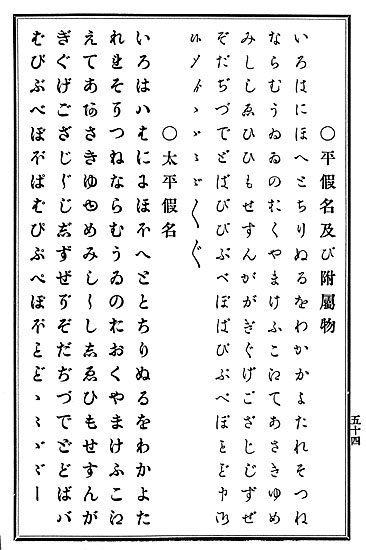 ○平假名及び附屬物
いろはにほへとちりぬるをわかかよたれそつね
ならむうゐのくやまけふこ江てあさきゆめ
みししゑひひもせすんががぎぐげござじじずぜ
ぞだぢづでどばびびぶべぼぱぴぴぷぺぽ
ゝゞゝゞ〱〲
○太平假名
いろはハにほへととちりぬるをわかよた
れそつねならむうゐのおくやまけふこ江
えてあさきゆめみしし志ゑひもせすんが
ぎぐげござじずぜぞだぢづでどばバ
びぶべぼぱぴぷぺぽゝゝゞゞー
五十四